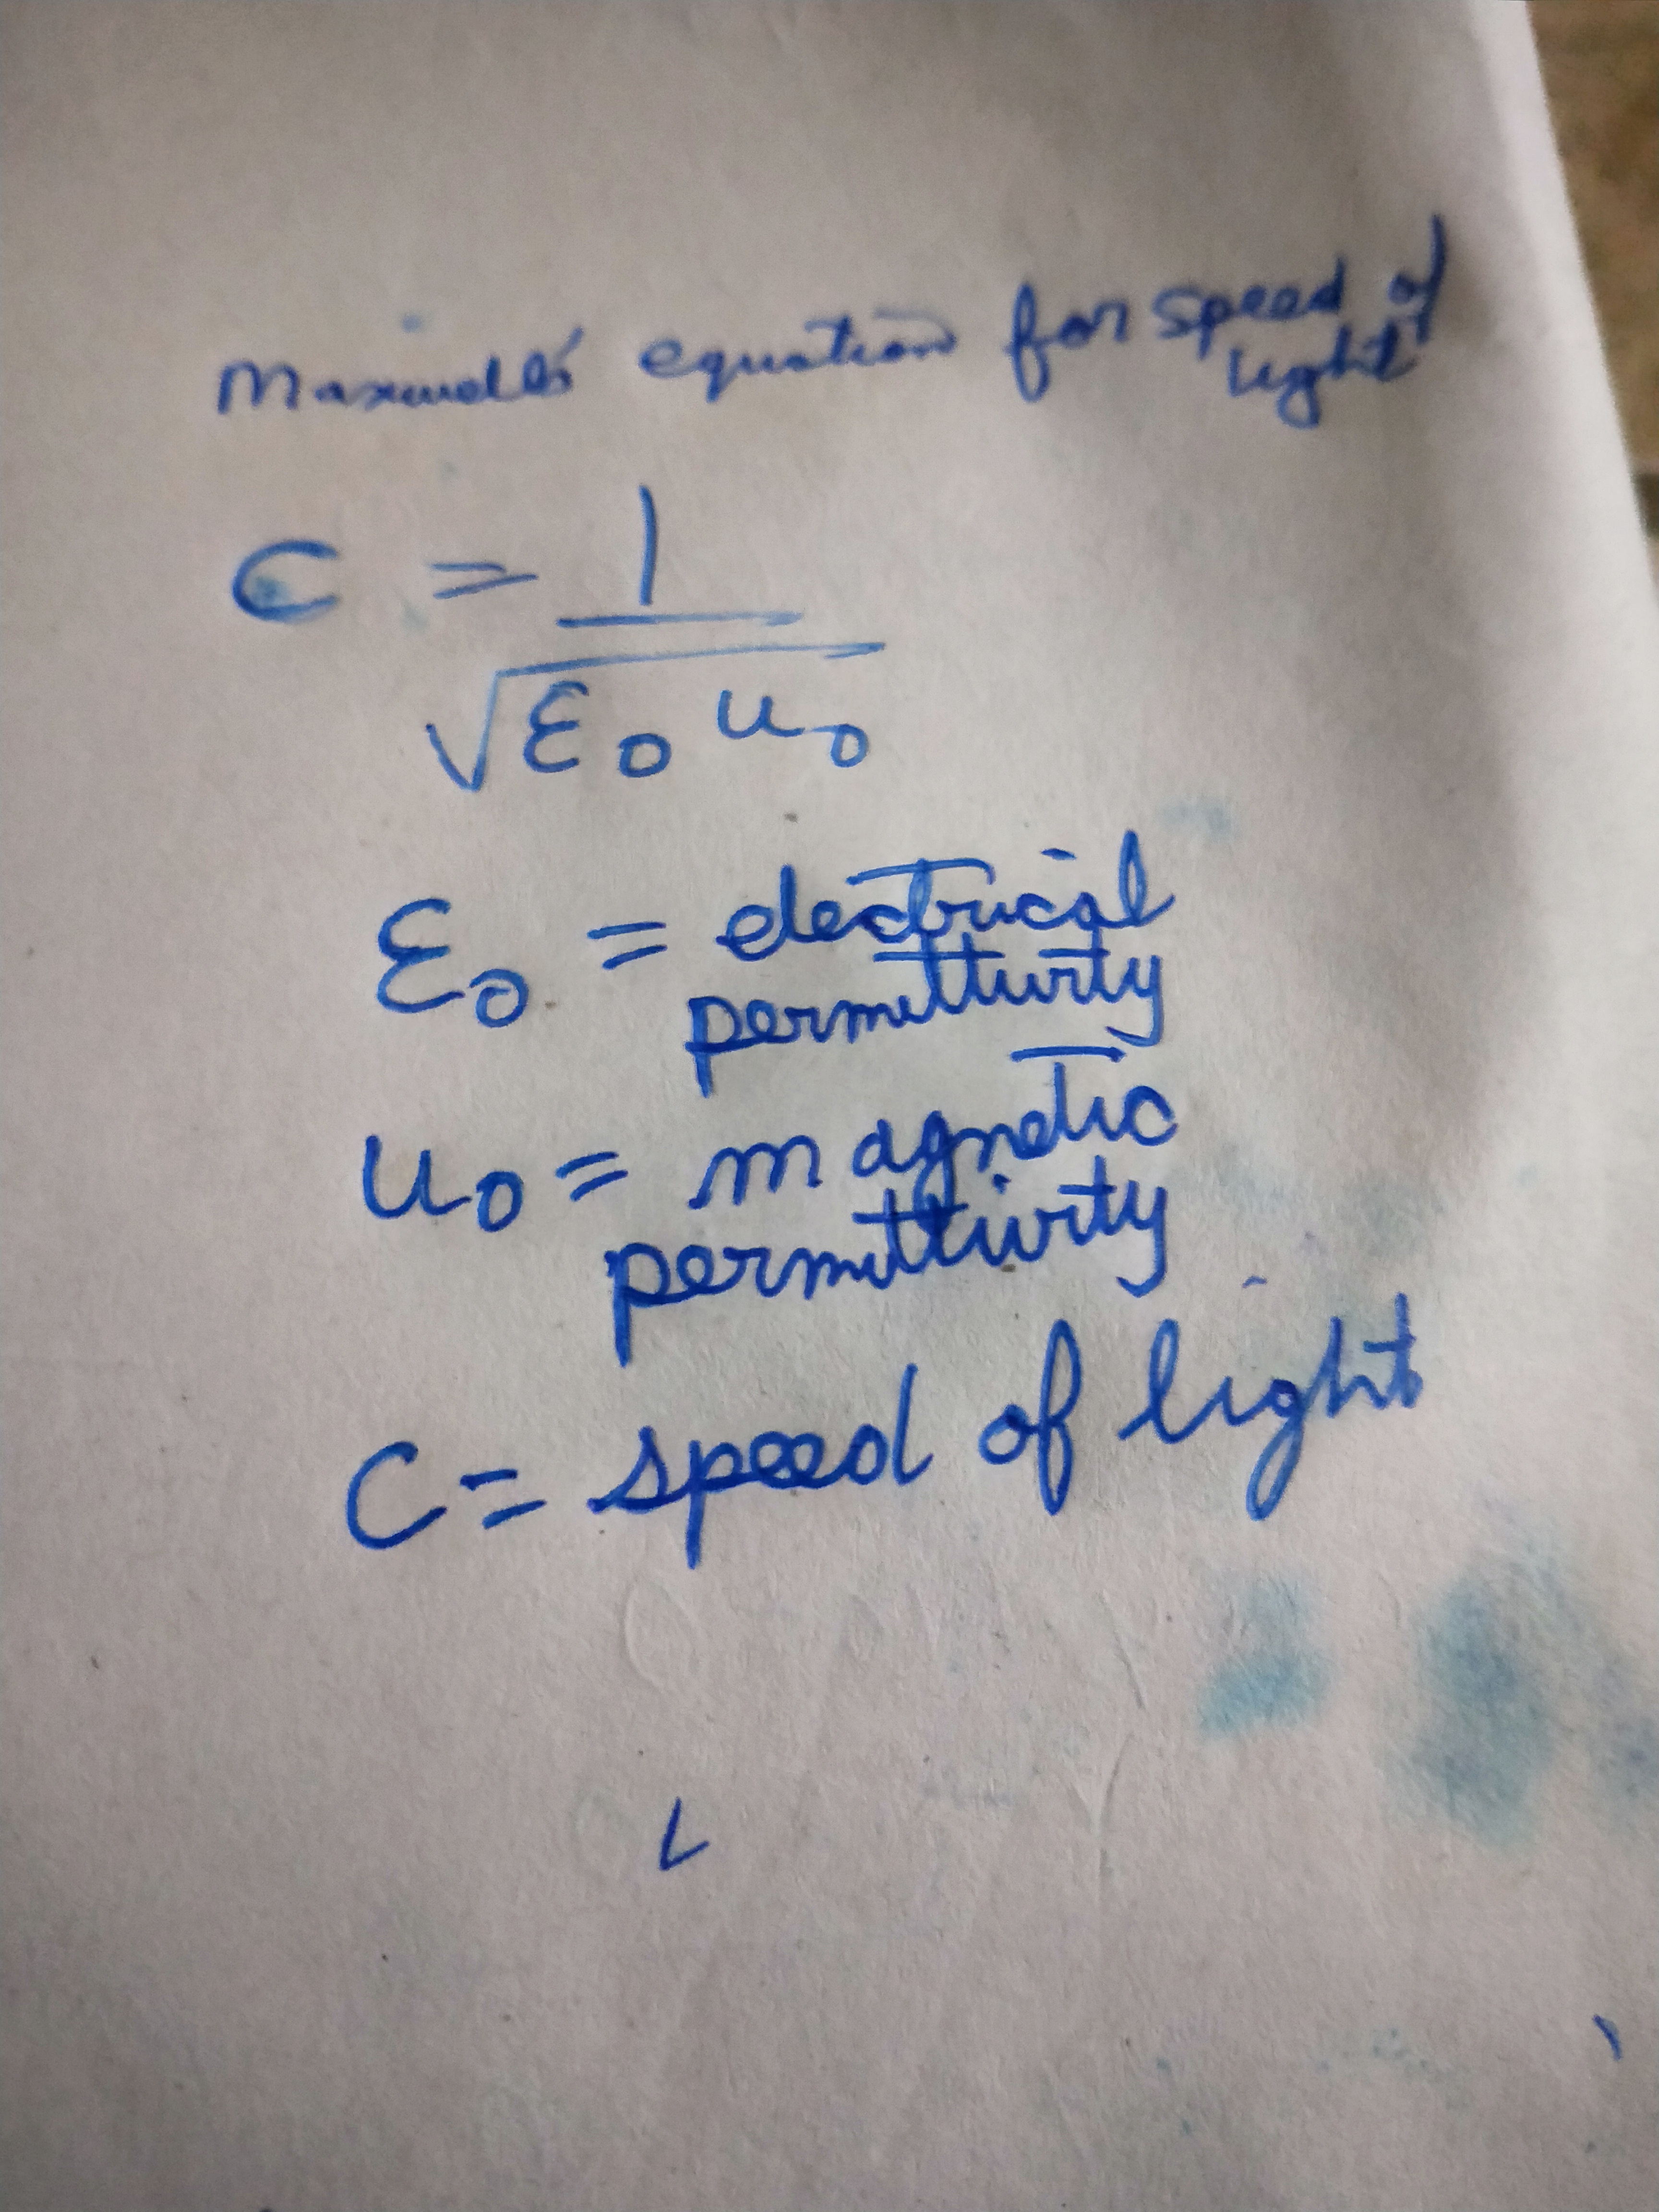 Maxwell's equation for speed of
light
C = 1
√ε₀ u₀
ε₀ = electrical
permittivity
u₀ = magnetic
permittivity
C = speed of light